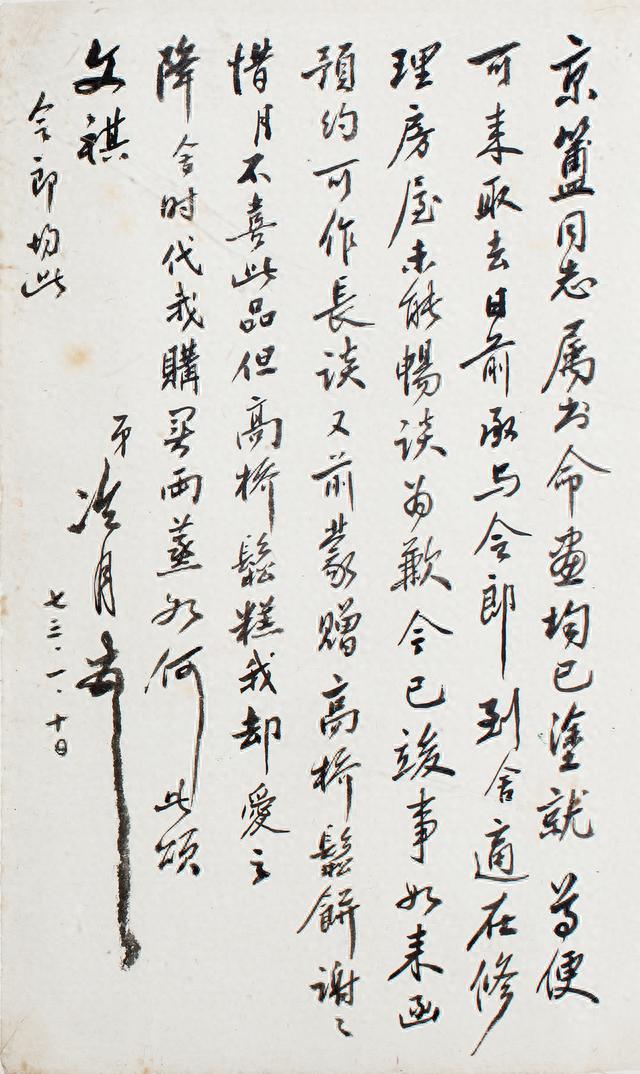 京簠同志属书命画均已塗就 尊便
可来取去日前承与令郎到舍適在修
理房屋未能暢谈为歉今已竣事如来函
预约可作長谈又前蒙赠高桥鬆餅谢〻
惜月不喜此品但高桥鬆糕我却愛之
降舍时代我購买両蒸如何 此颂
文祺
令郎均此
弟冷月
七三.一.十日